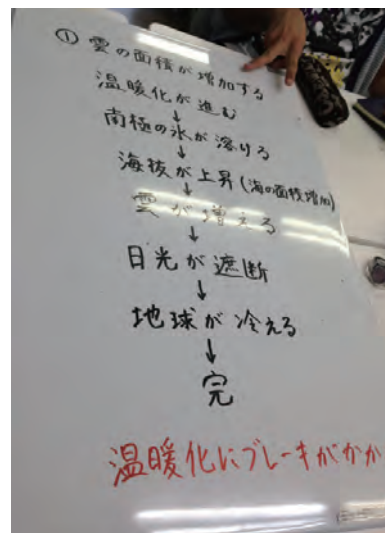 ① 雲の面積が増加する
温暖化が進む
↓
南極の氷が溶ける
↓
海抜が上昇(海の面積増加)
雲が増える
↓
日光が遮断
↓
地球が冷える
↓
完
温暖化にブレーキがかか